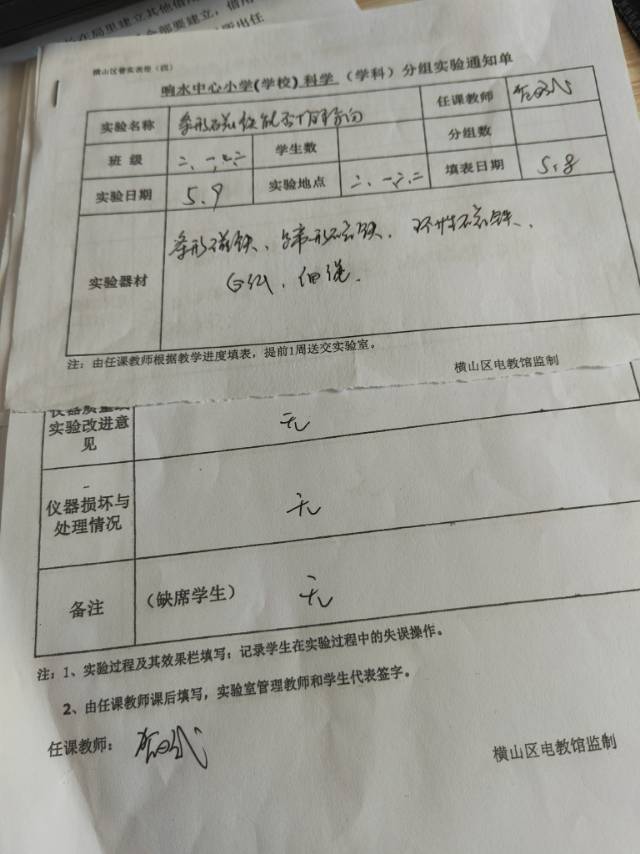 横山区普实表册（四）
响水中心小学(学校)科学（学科）分组实验通知单
实验名称 条形磁铁能否指示方向 任课教师
班 级 二、一,二 学生数 分组数
实验日期 5.9 实验地点 二、一,二 填表日期 5.8
实验器材 条形磁铁、蹄形磁铁、环形磁铁、
白纸、细绳.
注：由任课教师根据教学进度填表，提前1周送交实验室。
横山区电教馆监制
实验改进意见 无
仪器损坏与处理情况 无
备注 （缺席学生） 无
注：1、实验过程及其效果栏填写：记录学生在实验过程中的失误操作。
2、由任课教师课后填写，实验室管理教师和学生代表签字。
任课教师：
横山区电教馆监制